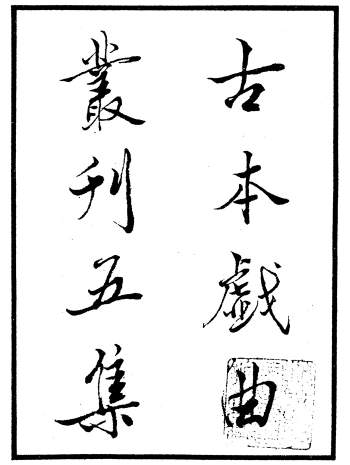 古本戲曲
叢刊五集